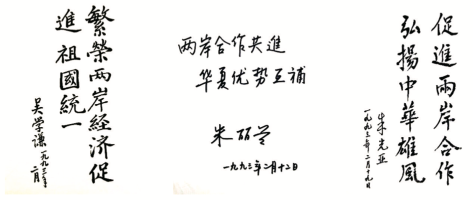 繁榮兩岸經济促
進祖國統一
吴学谦一九九三年
二月
两岸合作共進
华夏优势互补
朱丽兰
一九九三年二月十二日
促進兩岸合作
弘揚中華雄風
朱光亚
一九九三年二月十九日